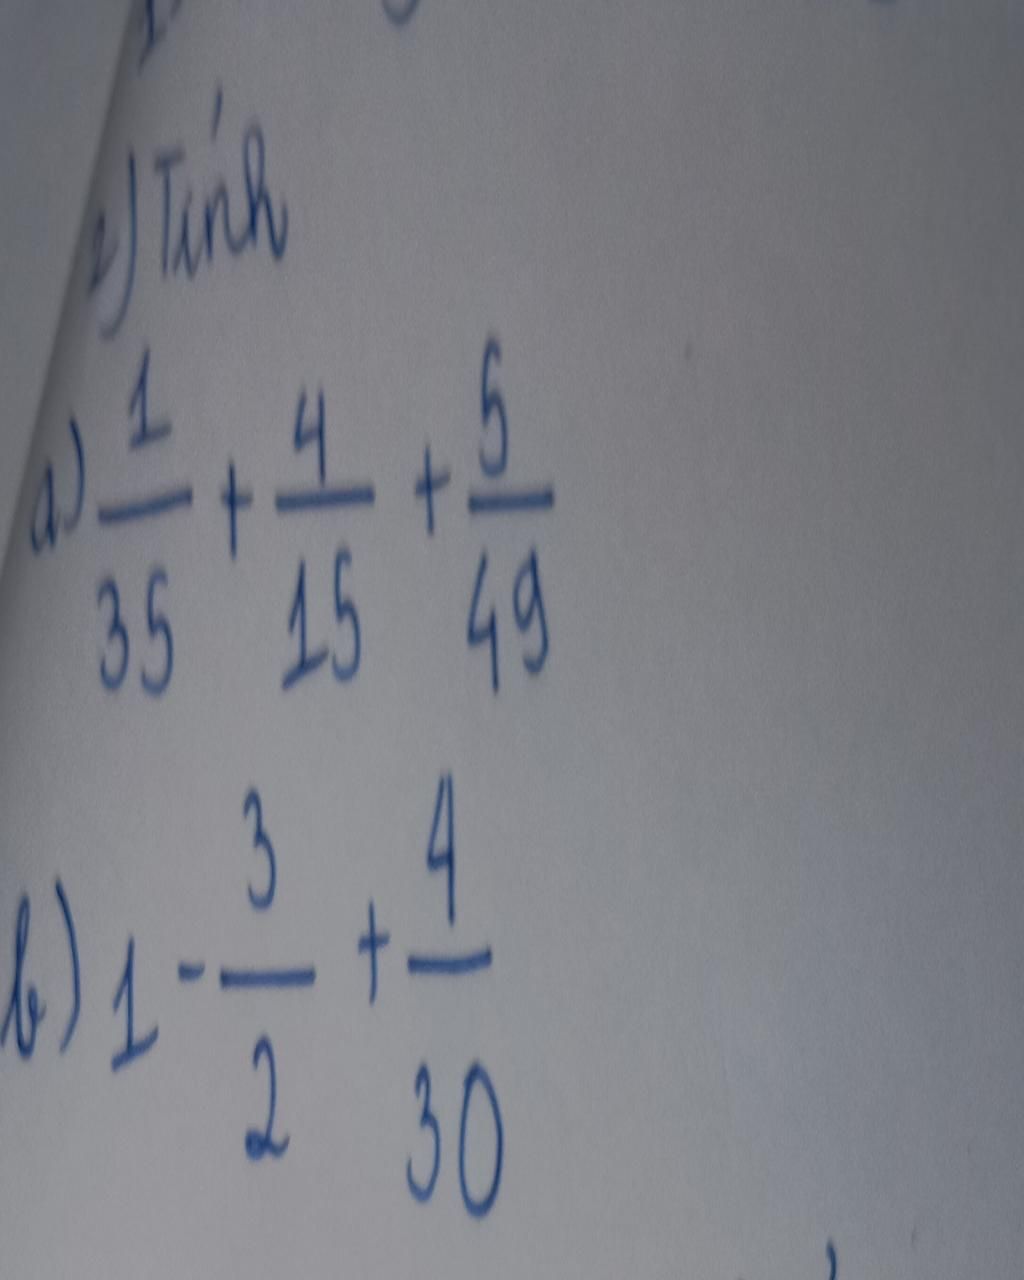 2) Tính
a) 1/35 + 4/15 + 5/49
b) 1 - 3/2 + 4/30